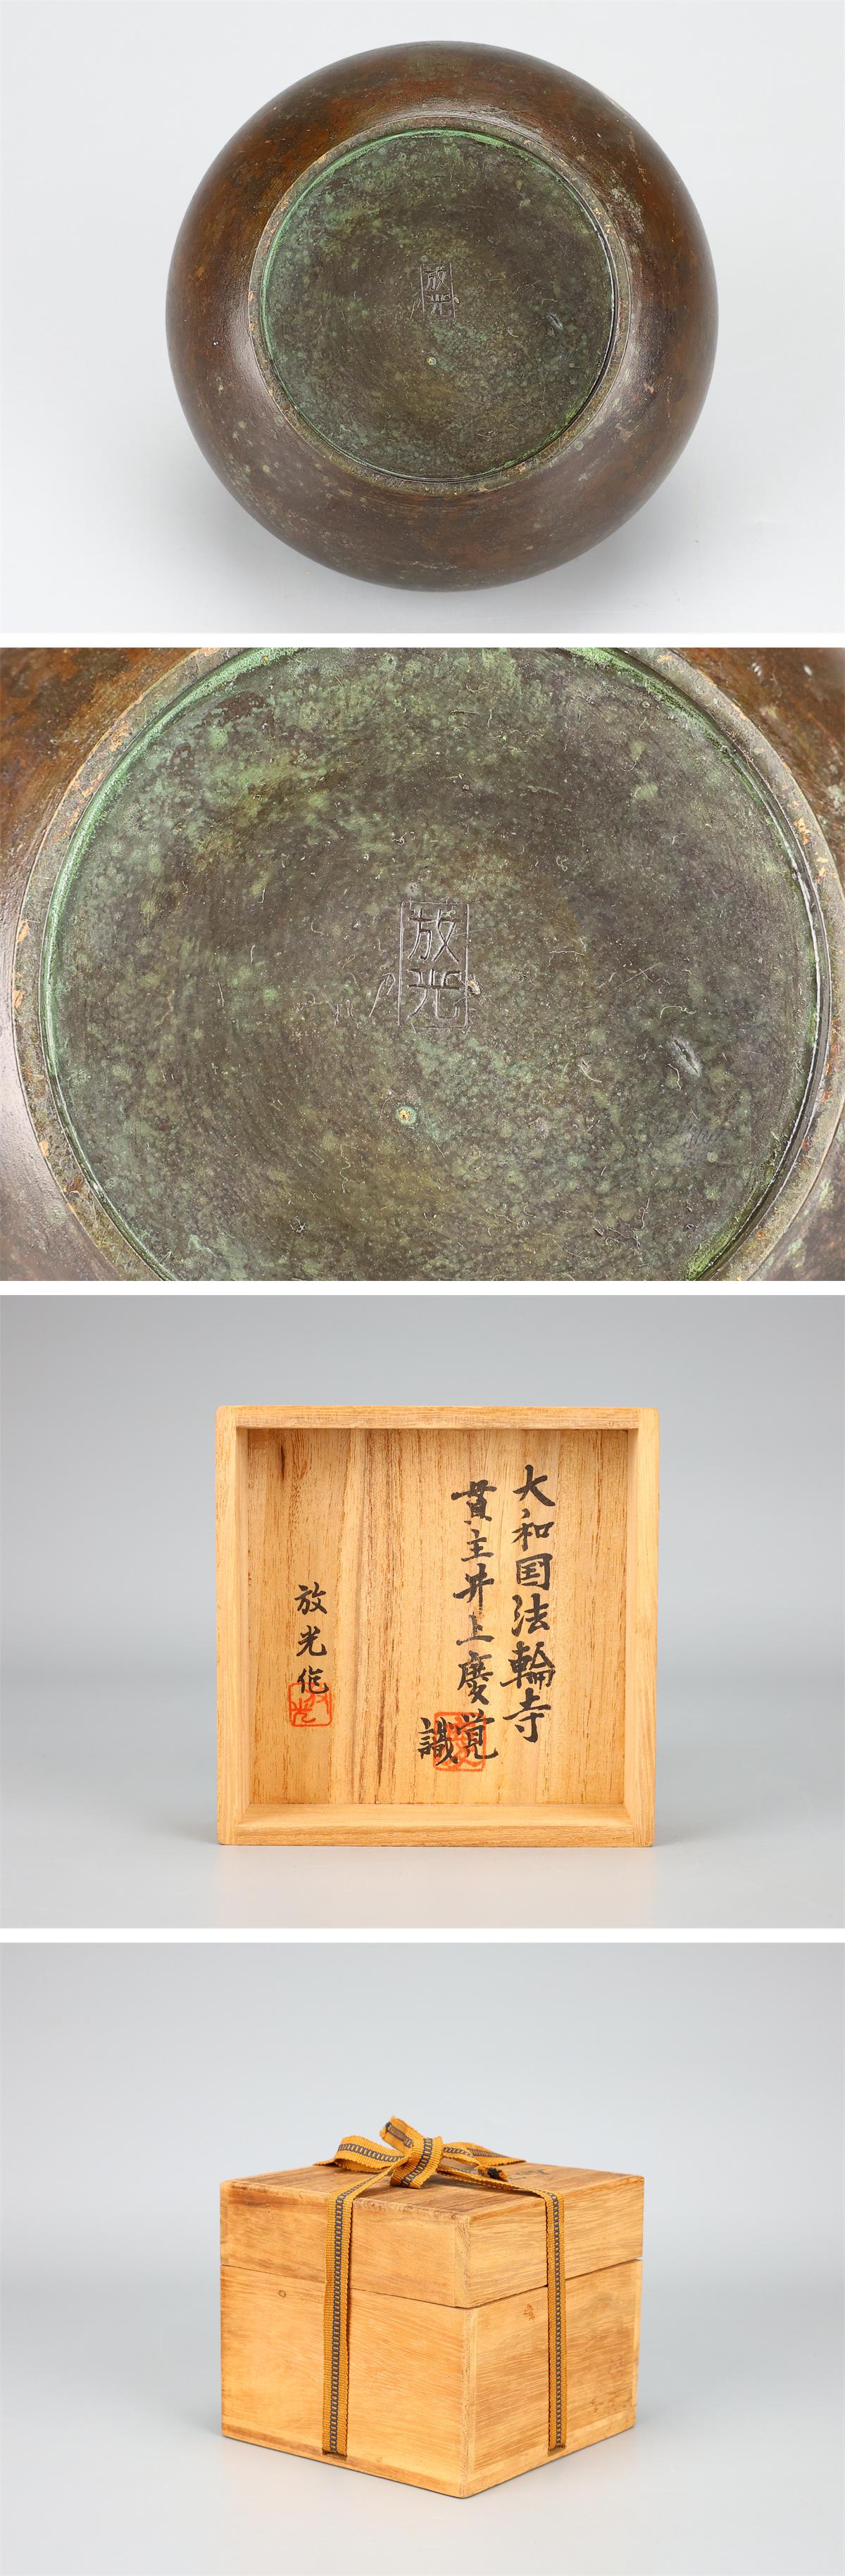 放光
放光
大和国法輪寺
貫主井上慶覚
識
放光作